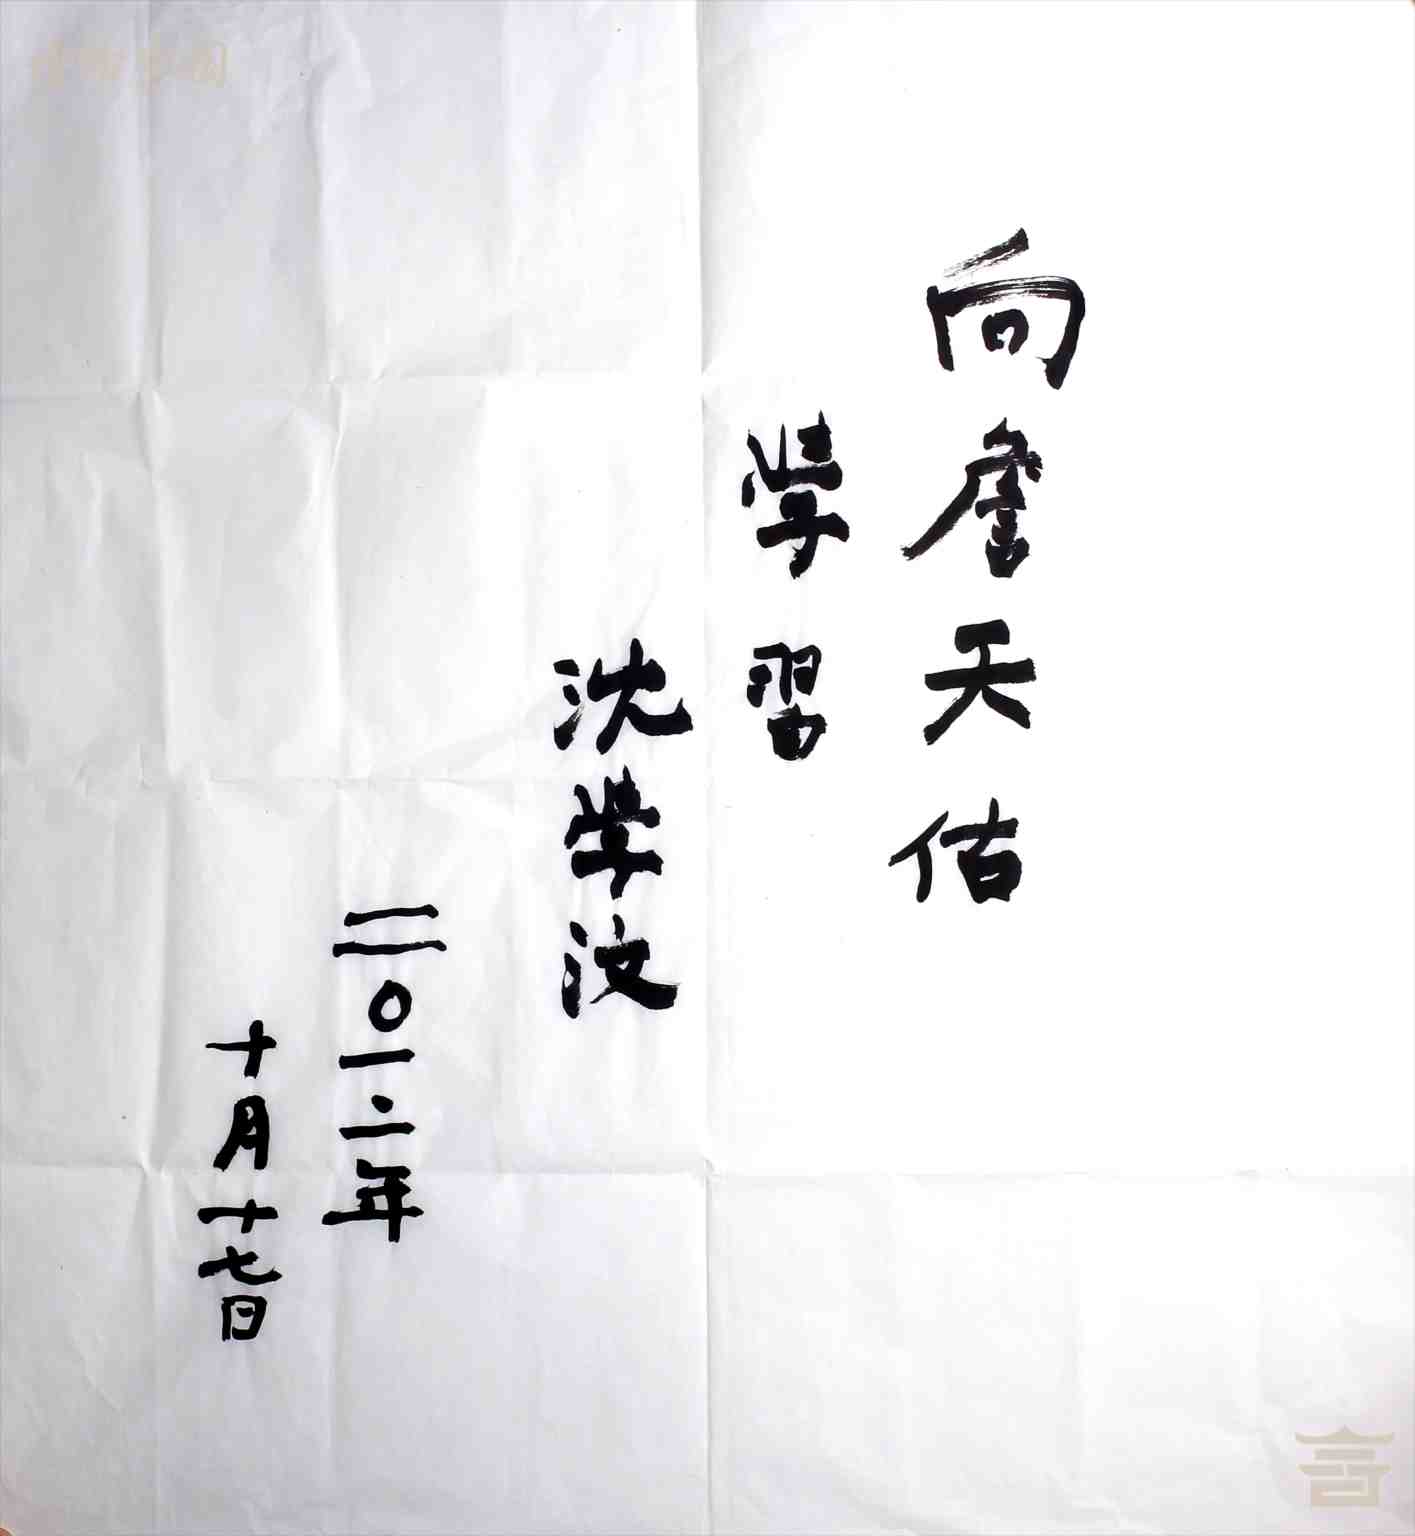 向詹天佑
學習
沈學汶
二〇一二年
十月十七日